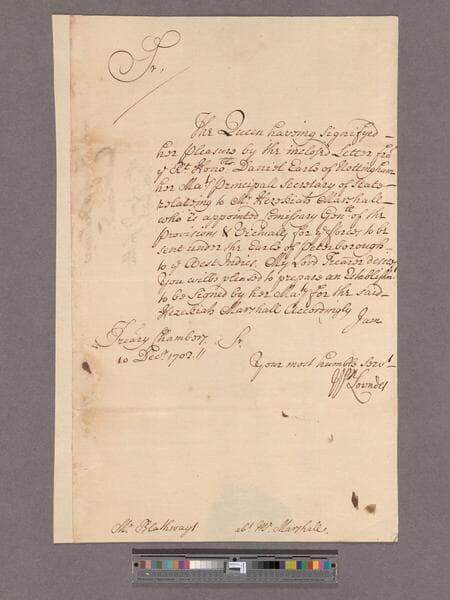 Sr,
The Queen having signifyed
her pleasure by the inclosd Letter frõ
ye Rt Hono:ble Daniel Earle of Nottingham
her Mats Principall Secretary of State
relating to Mr Hezekiah Marshall
who is appointed Comissary Genll of the
Provisions & Victualls for ye forces to be
sent under the Earle of Peterborough
to ye West Indies. My Lord Trẽarer desires
You will be pleased to prepare an Establishmt
to be signed by her Maty for the said
Hezekiah Marshall Accordingly I am
Sr.
Treãry Chambers.
10 Decr. 1702 //
Your most humble Servt
Wm Lowndes
Mr. Blathwayt
abt. Mr. Marshall.